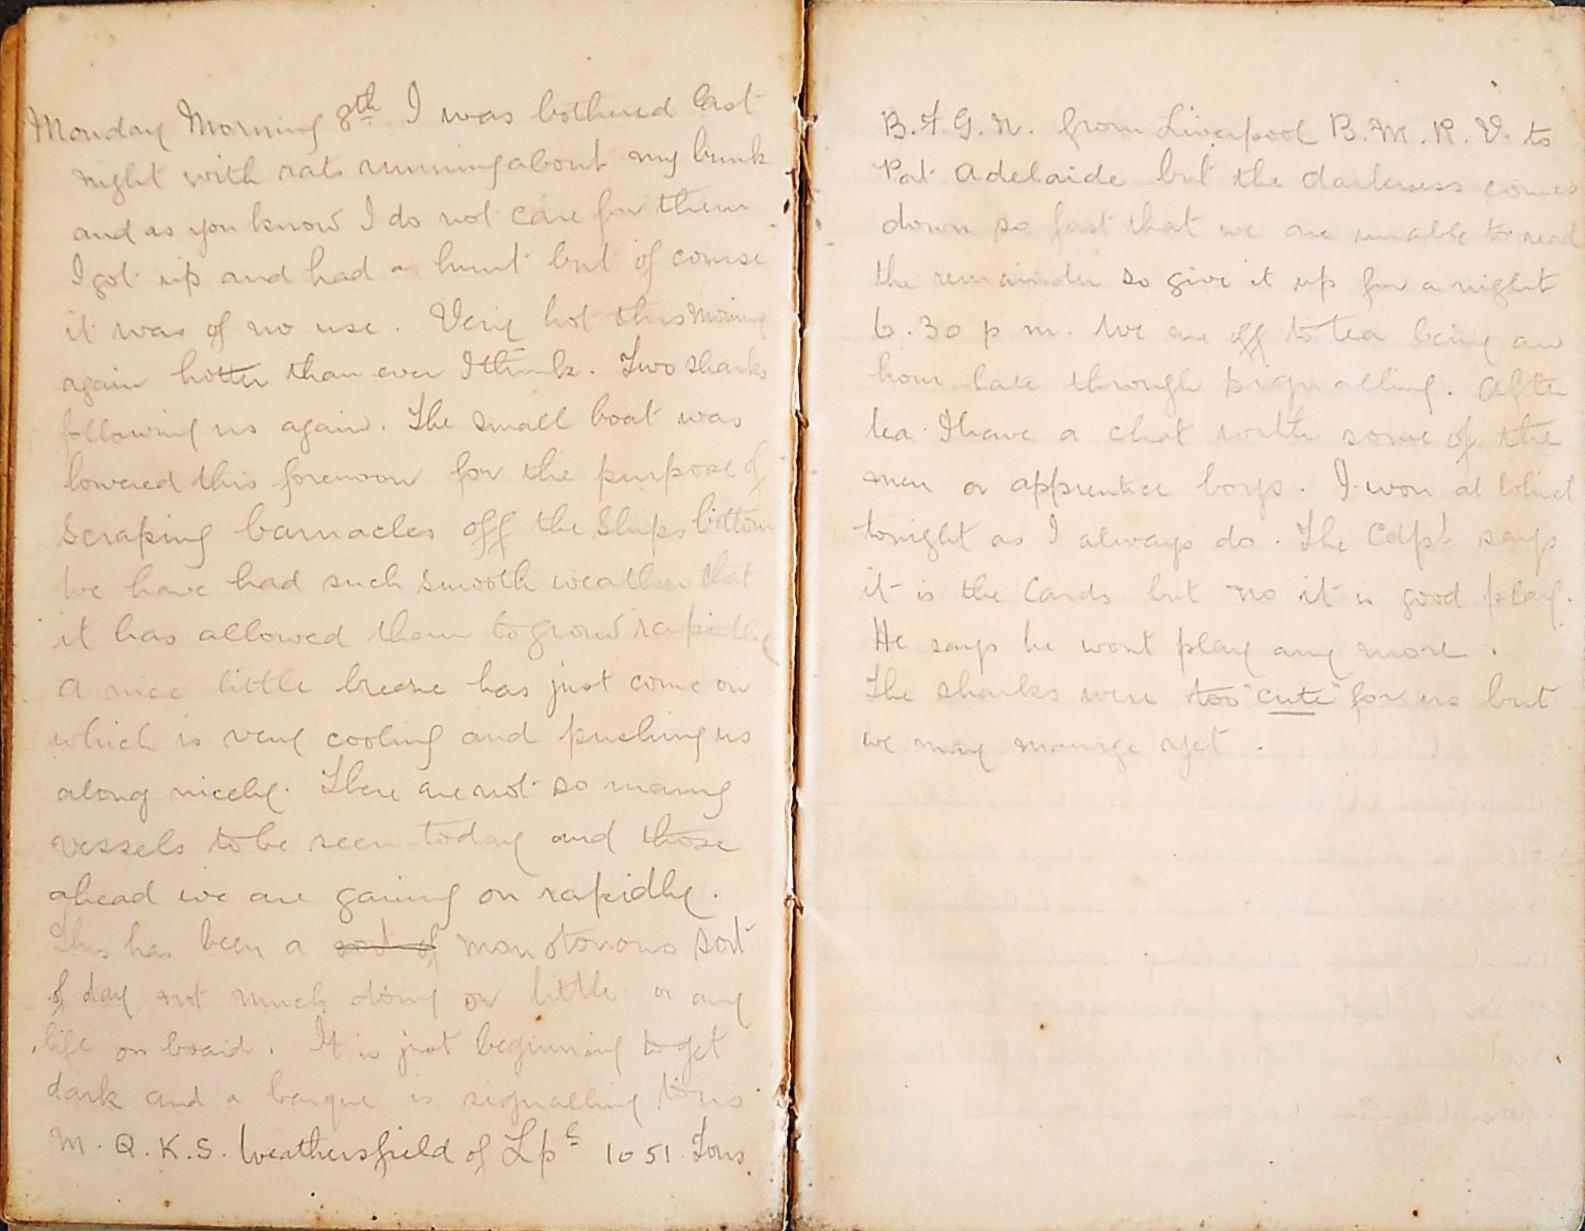 Monday Morning 8th I was bothered last
night with rats running about my bunk
and as you know I do not care for them
I got up and had a hunt but of course
it was of no use. Very hot this Morning
again hotter than ever I think. Two sharks
following us again. The small boat was
lowered this forenoon for the purpose of
scraping barnacles off the Ships bottom
We have had such smooth weather that
it has allowed them to grow rapidly
A nice little breeze has just come on
which is very cooling and pushing us
along nicely. There are not so many
vessels to be seen today and those
ahead we are gaining on rapidly.
This has been a sort of monotonous sort
of day not much doing or little or any
life on board. It is just beginning to get
dark and a barque is signalling to us
M. Q. K. S. Weathersfield of Lpl 1051 Tons
B. F. G. N. from Liverpool B. M. R. V. to
Pat. Adelaide but the darkness comes
down so fast that we are unable to read
the remainder so give it up for a night
6.30 p.m. We are off to tea being an
hour late through signalling. After
tea I have a chat with some of the
men or apprentice boys. I won at Whist
tonight as I always do. The Capt says
it is the Cards but no it is good play.
He says he wont play any more.
The sharks were too "cute" for us but
we may manage yet.